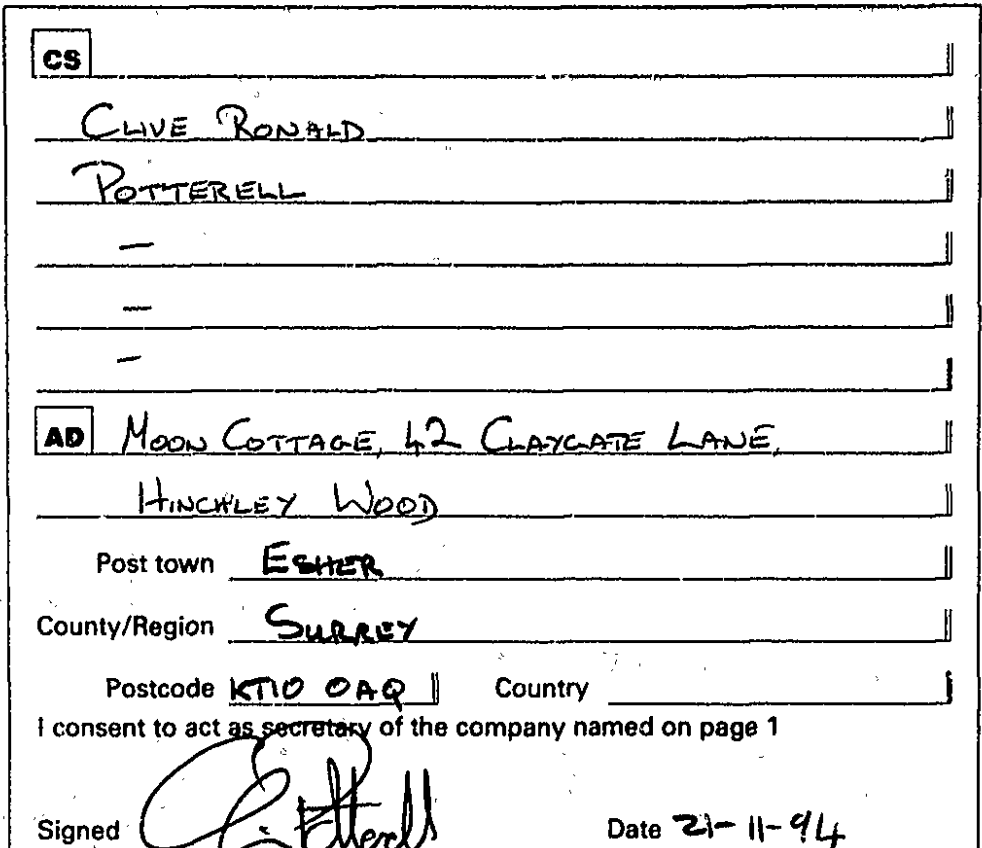 CS
CLIVE RONALD
POTTERELL
—
—
—
AD MOON COTTAGE, 42 CLAYGATE LANE,
HINCHLEY WOOD
Post town ESHER
County/Region SURREY
Postcode KT10 0AQ Country
I consent to act as secretary of the company named on page 1
Signed C. Potterell Date 21-11-94